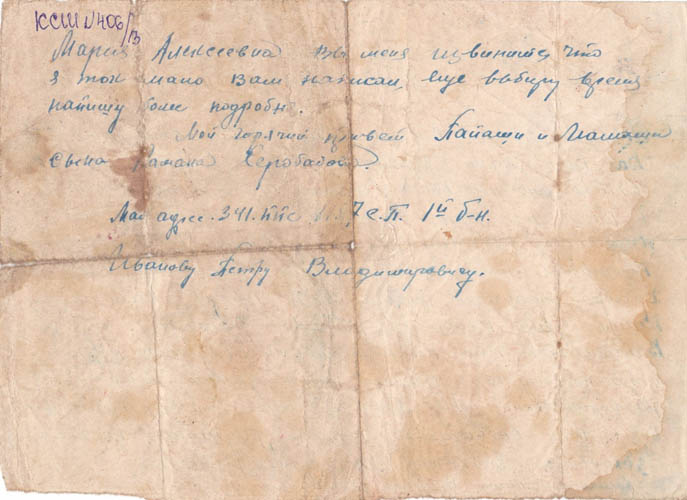 КСШ №406/13
Мария Алексеевна Вы меня извините, что
я так мало Вам написал, еще выберу время
напишу более подробно.
Мой горячий привет и
сына
Мой адрес. 341. ппс с.п. 1й б-н.
Иванову Петру Владимировичу.